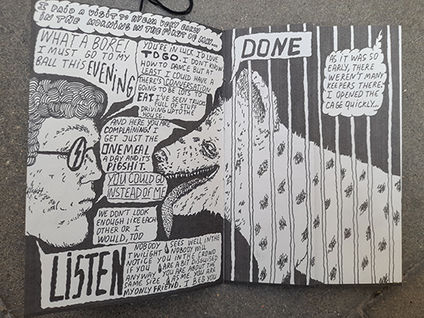 I PAID A VISIT TO
IN THE MORNING IN THE FIRST
WHAT A BORE!
I MUST GO TO MY
BALL THIS EVENING
YOU'RE IN LUCK. I'D LOVE
TO GO. I DON'T KNOW
HOW TO DANCE BUT AT
LEAST I COULD HAVE A
CONVERSATION
GOING TO BE LOTS TO
EAT. I'VE SEEN TRUCKS
FULL OF STUFF
DRIVING UP TO THE
HOUSE
AND HERE YOU'RE
COMPLAINING! I
GET JUST THE
ONE MEAL
A DAY AND IT'S
PIGSHIT.
YOU COULD GO
INSTEAD OF ME
WE DON'T LOOK
ENOUGH LIKE EACH
OTHER OR I
WOULD, TOO
LISTEN
NOBODY SEES WELL IN THE
TWILIGHT NOBODY WILL
NOTICE YOU IN THE CROWD
IF YOU ARE A BIT DISGUISED
ANYWAY. YOU ARE ABOUT THE
SAME SIZE AS ME. YOU ARE
MY ONLY FRIEND. I BEG YOU
DONE
AS IT WAS SO
EARLY, THERE
WEREN'T MANY
KEEPERS THERE.
I OPENED THE
CAGE QUICKLY...